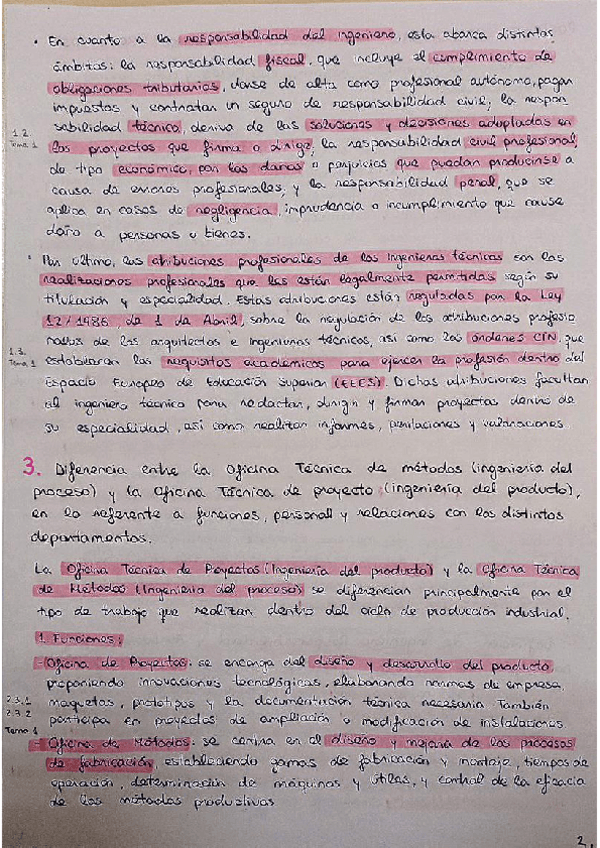 · En cuanto a la responsabilidad del ingeniero, esta abarca distintos
ámbitos: la responsabilidad fiscal, que incluye el cumplimiento de
obligaciones tributarias, darse de alta como profesional autónomo, pagar
impuestos y contratar un seguro de responsabilidad civil; la respon
sabilidad técnica, deriva de las soluciones y decisiones adoptadas en
1.2.
Tema 1
los proyectos que firma o dirige, la responsabilidad civil profesional,
de tipo económico, por los daños o perjuicios que puedan producirse a
causa de errores profesionales, y la responsabilidad penal, que se
aplica en casos de negligencia, imprudencia o incumplimiento que cause
daño a personas o bienes.
· Por último, las atribuciones profesionales de los ingenieros técnicos son las
realizaciones profesionales que les están legalmente permitidas según su
titulación y especialidad. Estas atribuciones están reguladas por la Ley
12/1986, de 1 de Abril, sobre la regulación de las atribuciones profesio
nales de los arquitectos e ingenieros técnicos, así como las órdenes CIN, que
1.3.
Tema 1
establecieron los requisitos académicos para ejercer la profesión dentro del
Espacio Europeo de Educación Superior (EEES). Dichas atribuciones facultan
al ingeniero técnico para redactar, dirigir y firmar proyectos dentro de
su especialidad, así como realizar informes, peritaciones y valoraciones
3. Diferencia entre la Oficina Técnica de métodos (ingeniería del
proceso) y la Oficina Técnica de proyecto (ingeniería del producto),
en lo referente a funciones, personal y relaciones con los distintos
departamentos.
La Oficina Técnica de Proyectos (Ingeniería del producto) y la Oficina Técnica
de Métodos (Ingeniería del proceso) se diferencian principalmente por el
tipo de trabajo que realizan dentro del ciclo de producción industrial.
1. Funciones:
- Oficina de Proyectos: se encarga del diseño y desarrollo del producto,
proponiendo innovaciones tecnológicas, elaborando normas de empresa,
2.3.1
2.3.2
Tema 1
maquetas, prototipos y la documentación técnica necesaria. También
participa en proyectos de ampliación o modificación de instalaciones
- Oficina de Métodos: se centra en el diseño y mejora de los procesos
de fabricación, estableciendo gamas de fabricación y montaje, tiempos de
operación, determinación de máquinas y útiles, y control de la eficacia
de los métodos productivos
2.